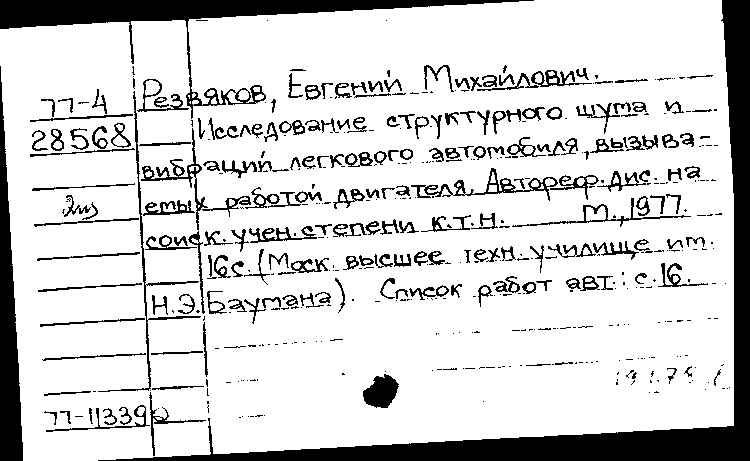 77-4 Резвяков, Евгений Михайлович.
28568 Исследование структурного шума и
вибраций легкового автомобиля, вызыва-
емых работой двигателя. Автореф. дис. на
соиск. учен. степени к.т.н. М., 1977.
16с. (Моск. высшее техн. училище им.
Н.Э. Баумана). Список работ авт.: с.16.
77-11339